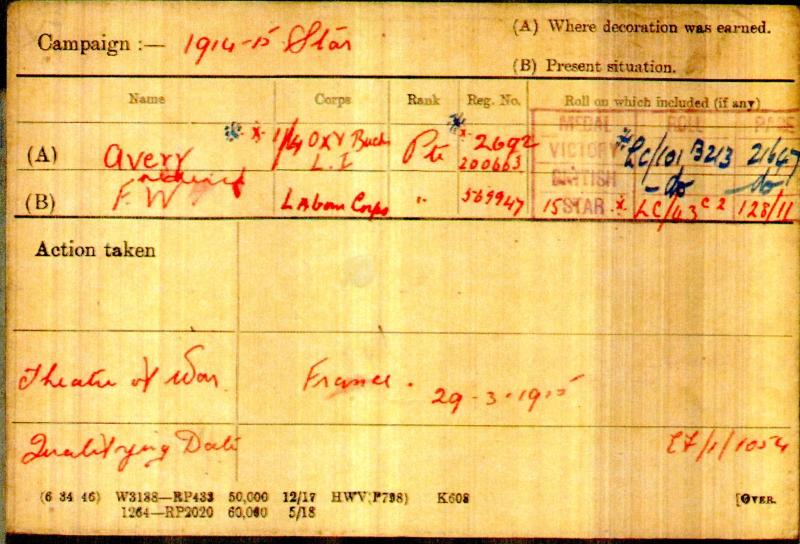 Campaign :— 1914-15 Star
(A) Where decoration was earned.
(B) Present situation.
Name Corps Rank Reg. No. Roll on which included (if any)
MEDAL ROLL PAGE
(A) Avery * * 1/4 Ox & Bucks L.I. Pte * 2692 200663 VICTORY * LC/101 B213 21647
BRITISH — do — do
(B) F W Labour Corps " 569947 15 STAR * LC/43 C2 128/11
Action taken
Theatre of War France. 29-3-1915
Qualifying Date
(6 34 46) W3188—RP433 50,000 12/17 HWV(P798) K608 [OVER.
1264—RP2020 60,000 5/18